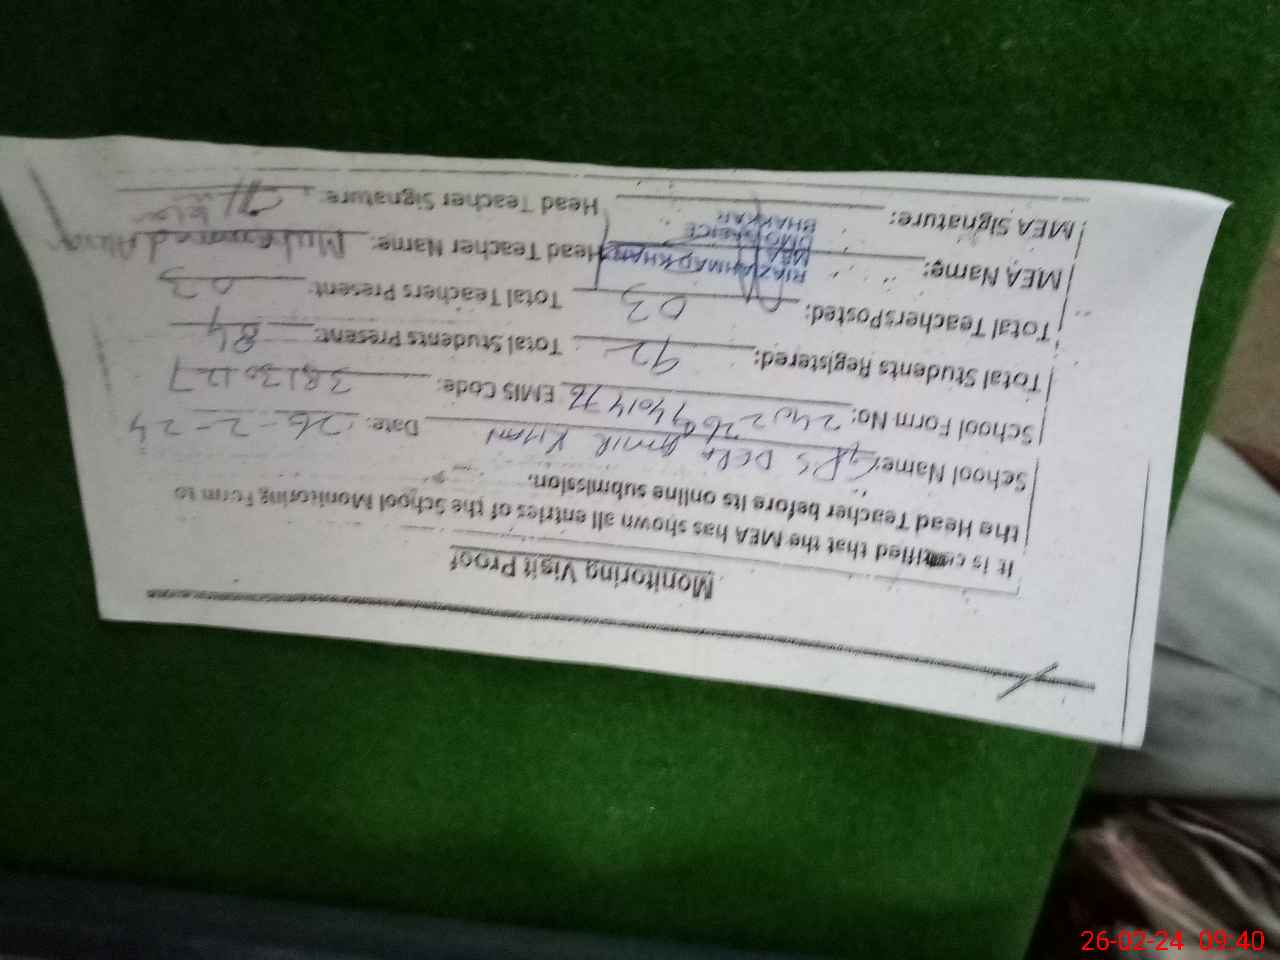 Monitoring Visit Proof
It is certified that the MEA has shown all entries of the School Monitoring Form to
the Head Teacher before its online submission.
School Name: GPS DERA AMIR KHAN Date: 26-2-24
School Form No: EMIS Code: 38130127
Total Students Registered: 92 Total Students Present: 84
Total Teachers Posted: 03 Total Teachers Present: 03
MEA Name: RIAZ AHMAD KHAN Head Teacher Name: Muhammad
MEA
DMO OFFICE
BHAKKAR
MEA Signature: Head Teacher Signature:
26-02-24 09:40